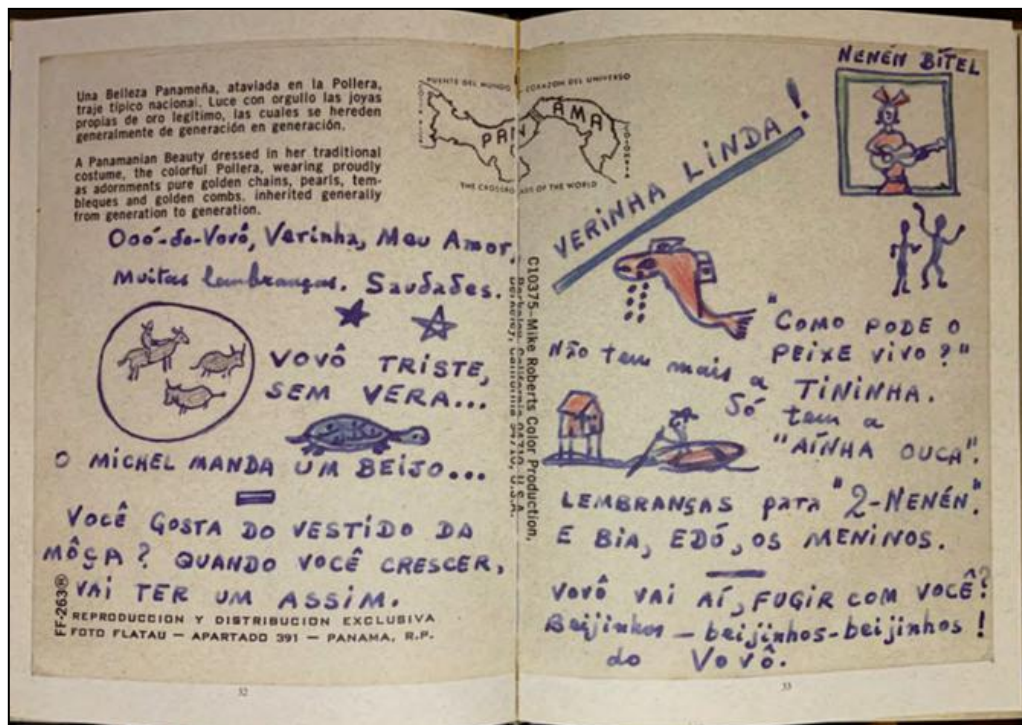 Una Belleza Panameña, ataviada en la Pollera,
traje típico nacional. Luce con orgullo las joyas
propias de oro legítimo, las cuales se hereden
generalmente de generación en generación.
A Panamanian Beauty dressed in her traditional
costume, the colorful Pollera, wearing proudly
as adornments pure golden chains, pearls, tem-
bleques and golden combs. inherited generally
from generation to generation.
PUENTE DEL MUNDO - CORAZON DEL UNIVERSO
PANAMA
COLOMBIA
THE CROSSROADS OF THE WORLD
Ooó-do-Vovô, Verinha, Meu Amor.
Muitas lembranças. Saudades.
VOVÔ TRISTE,
SEM VERA...
O MICHEL MANDA UM BEIJO...
VOCÊ GOSTA DO VESTIDO DA
MÔÇA? QUANDO VOCÊ CRESCER,
VAI TER UM ASSIM.
FF-263®
REPRODUCCION Y DISTRIBUCION EXCLUSIVA
FOTO FLATAU — APARTADO 391 — PANAMA, R.P.
32
C10375-Mike Roberts Color Production,
Berkeley, California 94710, U.S.A.
NENÉN BÍTEL
VERINHA LINDA!
"COMO PODE O
PEIXE VIVO?"
Não tem mais a
TININHA.
Só tem a
"AÍNHA OUCA".
LEMBRANÇAS para "2-NENÉN."
E BIA, EDÓ, OS MENINOS.
VOVÔ VAI AÍ, FUGIR COM VOCÊ?
Beijinhos — beijinhos - beijinhos!
do Vovô.
33